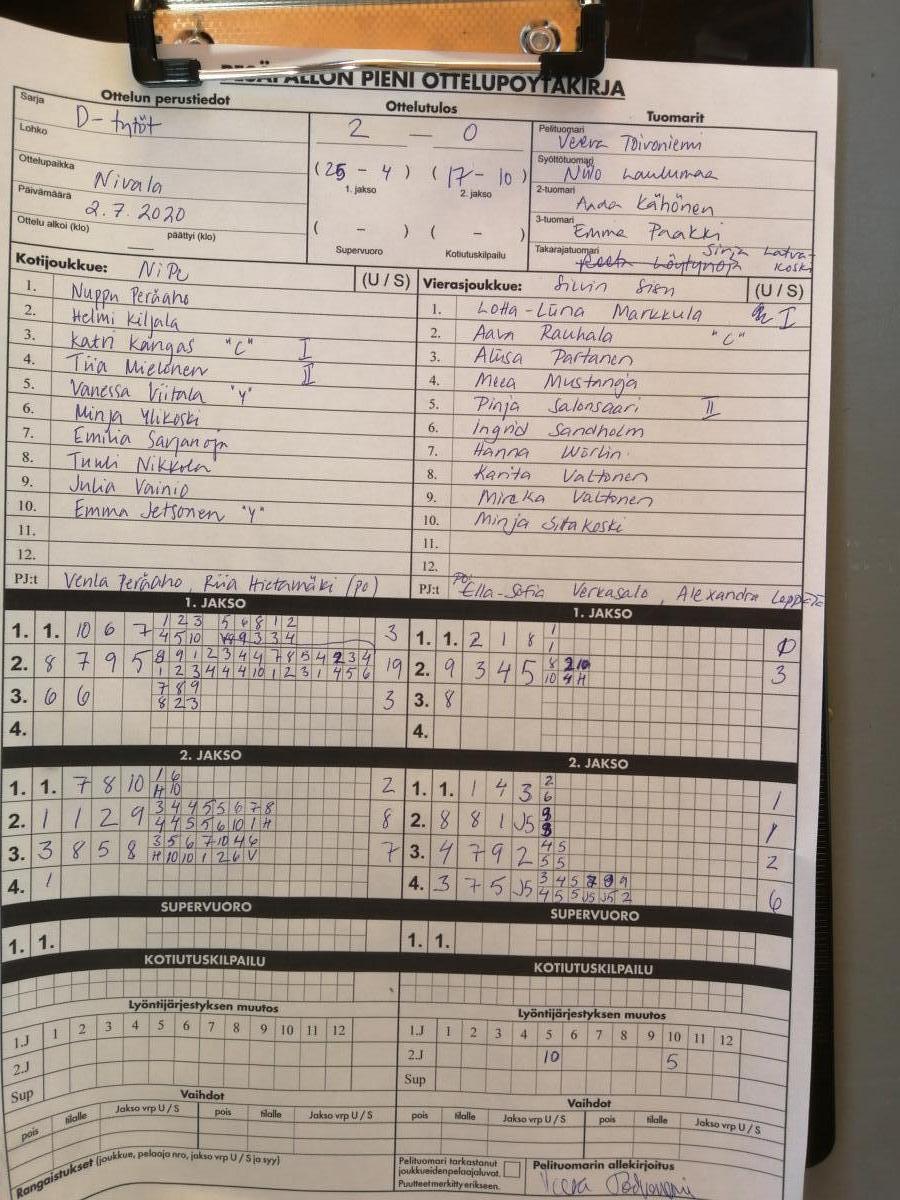 PESÄPALLON PIENI OTTELUPÖYTÄKIRJA
Ottelun perustiedot
Ottelutulos
Tuomarit
Sarja D-tytöt
Lohko
Ottelupaikka Nivala
Päivämäärä 2.7.2020
Ottelu alkoi (klo) päättyi (klo)
2 — 0
(25 - 4) (17 - 10)
1. jakso 2. jakso
( - ) ( - )
Supervuoro Kotiutuskilpailu
Pelituomari Veera Toivoniemi
Syöttötuomari Niilo Laulumaa
2-tuomari Anda Kähönen
3-tuomari Emma Paakki
Takarajatuomari Sinja Latva-Koski
Kotijoukkue: NiPe (U / S)
1. Nuppu Peräaho
2. Helmi Kiljala
3. Katri Kangas "C" I
4. Tiia Mielonen II
5. Vanessa Viitala "Y"
6. Minja Ylikoski
7. Emilia Sarjanoja
8. Tuuli Nikkola
9. Julia Vainio
10. Emma Jetsonen "Y"
11.
12.
PJ:t Venla Peräaho, Riia Hietamäki (po)
Vierasjoukkue: (U / S)
1. Lotta-Liina Markkula I
2. Aava Rauhala "C"
3. Aliisa Partanen
4. Meea Mustonoja
5. Pinja Salonsaari II
6. Ingrid Sandholm
7. Hanna Wörlin
8. Karita Valtonen
9. Mirka Valtonen
10. Minja Siitakoski
11.
12.
PJ:t po: Ella-Sofia Verkasalo, Alexandra
1. JAKSO
1. 1. 10 6 7 1 2 3 5 6 8 1 2 3
4 5 10 9 3 3 4
2. 8 7 9 5 8 9 1 2 3 4 4 7 8 5 4 2 3 4 19
1 2 3 4 4 4 10 1 2 3 1 4 5 6
3. 6 6 7 8 9 3
8 2 3
4.
1. JAKSO
1. 1. 2 1 8 1 0
1
2. 9 3 4 5 8 2 10 3
10 4 H
3. 8
4.
2. JAKSO
1. 1. 7 8 10 1 6 2
H 10
2. 1 1 2 9 3 4 4 5 5 6 7 8 8
4 4 5 5 6 10 1 H
3. 3 8 5 8 3 5 6 7 10 4 6 7
H 10 10 1 2 6 V
4. 1
2. JAKSO
1. 1. 1 4 3 2 1
6
2. 8 8 1 J5 1
3. 4 7 9 2 4 5 2
5 5
4. 3 7 5 J5 3 4 5 9 6
4 5 5 J5 J5 2
SUPERVUORO
1. 1.
SUPERVUORO
1. 1.
KOTIUTUSKILPAILU
KOTIUTUSKILPAILU
Lyöntijärjestyksen muutos
1.J 1 2 3 4 5 6 7 8 9 10 11 12
2.J
Sup
Lyöntijärjestyksen muutos
1.J 1 2 3 4 5 6 7 8 9 10 11 12
2.J 10 5
Sup
Vaihdot
pois tilalle Jakso vrp U / S pois tilalle Jakso vrp U / S
Vaihdot
pois tilalle Jakso vrp U / S pois tilalle Jakso vrp U / S
Rangaistukset (joukkue, pelaaja nro, jakso vrp U / S ja syy)
Pelituomari tarkastanut
joukkueidenpelaajaluvat.
Puutteet merkitty erikseen.
Pelituomarin allekirjoitus
Veera Toivoniemi